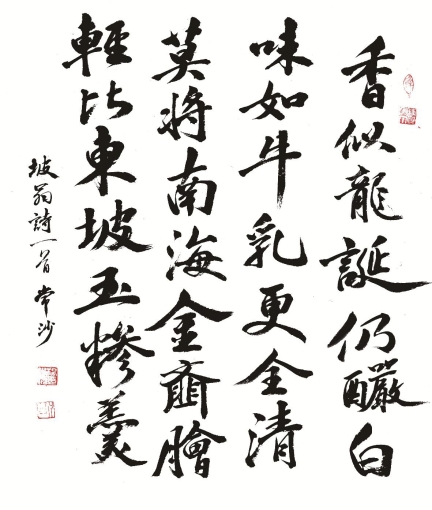 香似龍誕仍釅白
味如牛乳更全清
莫將南海金齏膾
輕比東坡玉糝羹
坡翁詩一首 常沙